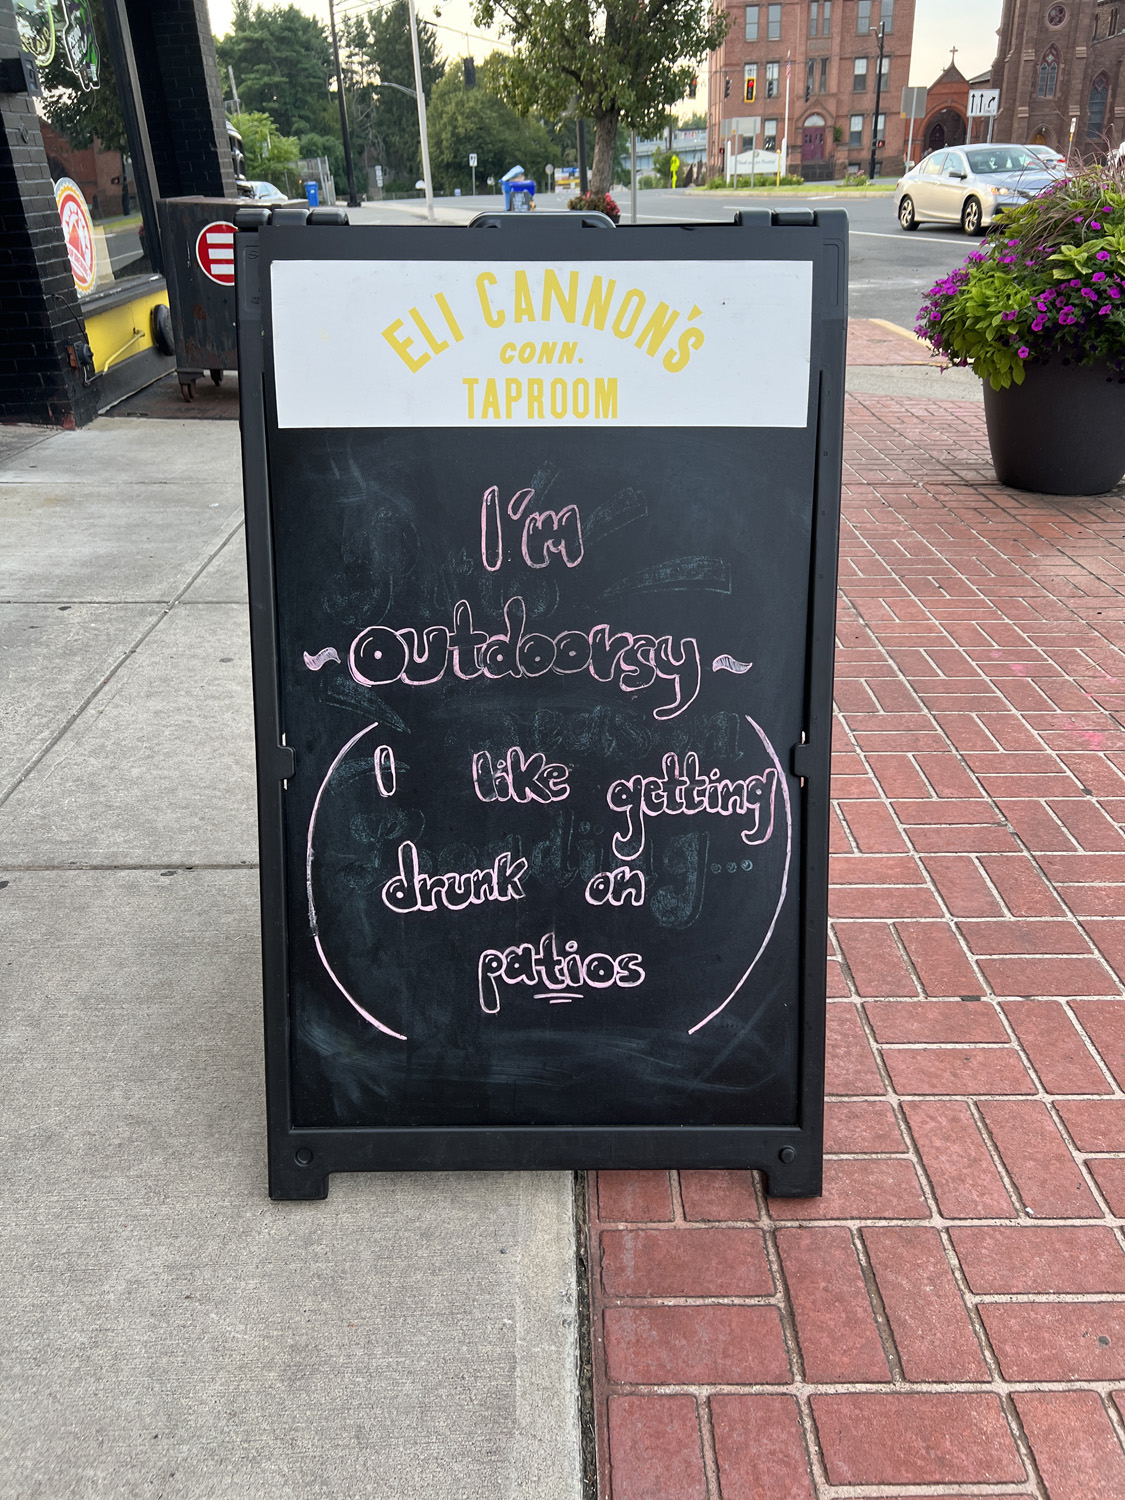 ELI CANNON'S
CONN.
TAPROOM
I'm
~outdoorsy~
(I like getting
drunk on
patios)